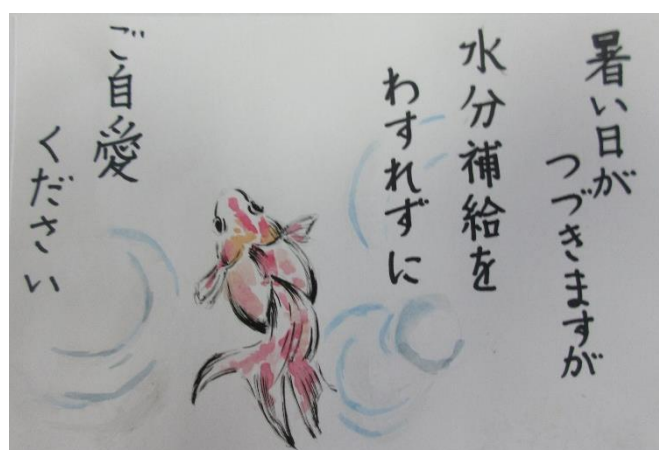 暑い日が
つづきますが
水分補給を
わすれずに
ご自愛
ください